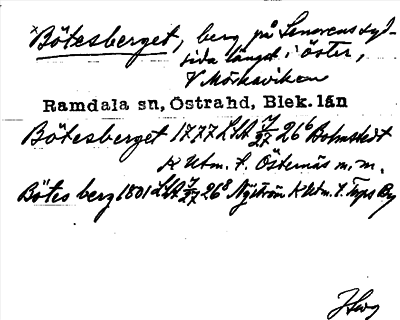 Bötesberget, berg på Senorens syd-
sida längst i öster,
V Mörkaviken
Ramdala sn, Östrahd, Blek. län
Bötesberget 1777 LSA 26⁶ Bolmstedt
K Utm. t. Östernäs m.m.
Bötes berg 1801 LSA 26⁸ Nyström K Utm. t. By